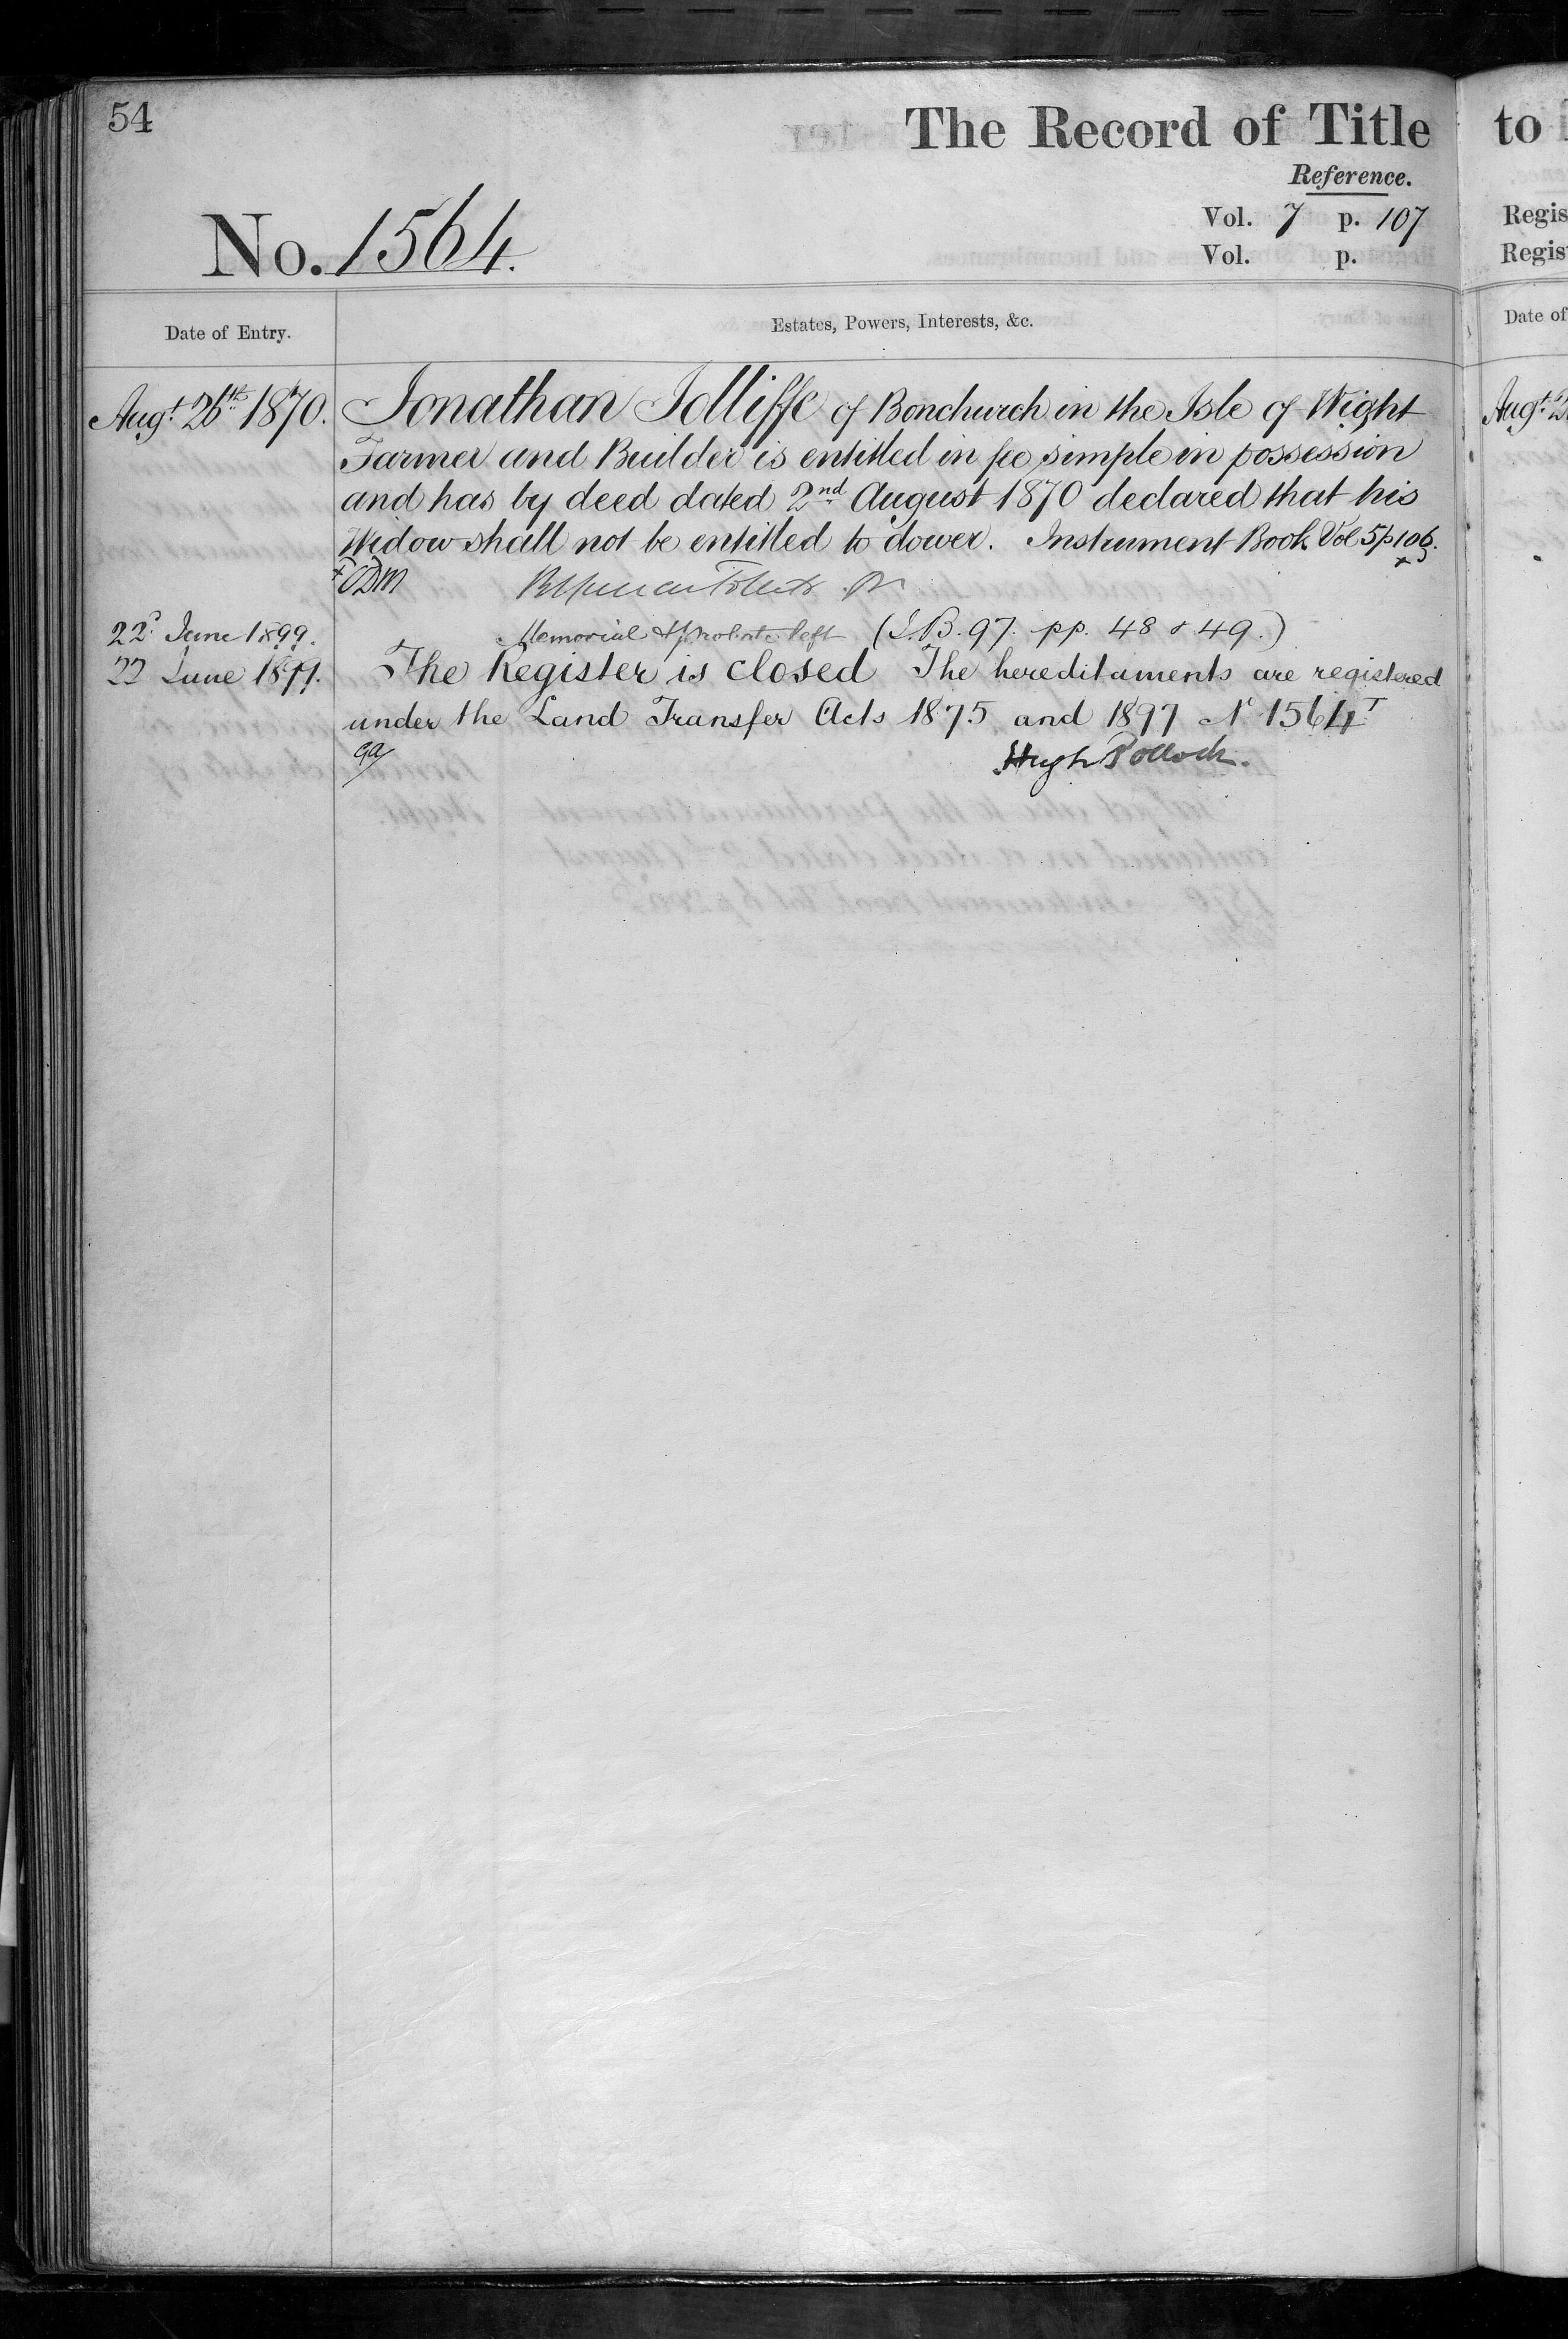 54
The Record of Title
to
Reference.
Vol. 7 p. 107
Regis
No. 1564.
Vol. p.
Regis
Date of Entry.
Estates, Powers, Interests, &c.
Date of
Augt. 26th 1870.
Jonathan Jolliffe of Bonchurch in the Isle of Wight
Augt. 2
Farmer and Builder is entitled in fee simple in possession
and has by deed dated 2nd August 1870 declared that his
Widow shall not be entitled to dower. Instrument Book Vol 5 p 106.
22d June 1899.
Memorial & probate left (I.B. 97. pp. 48 & 49.)
22 June 1899.
The Register is closed The hereditaments are registered
under the Land Transfer Acts 1875 and 1897 No 1564T
Hugh Pollock.